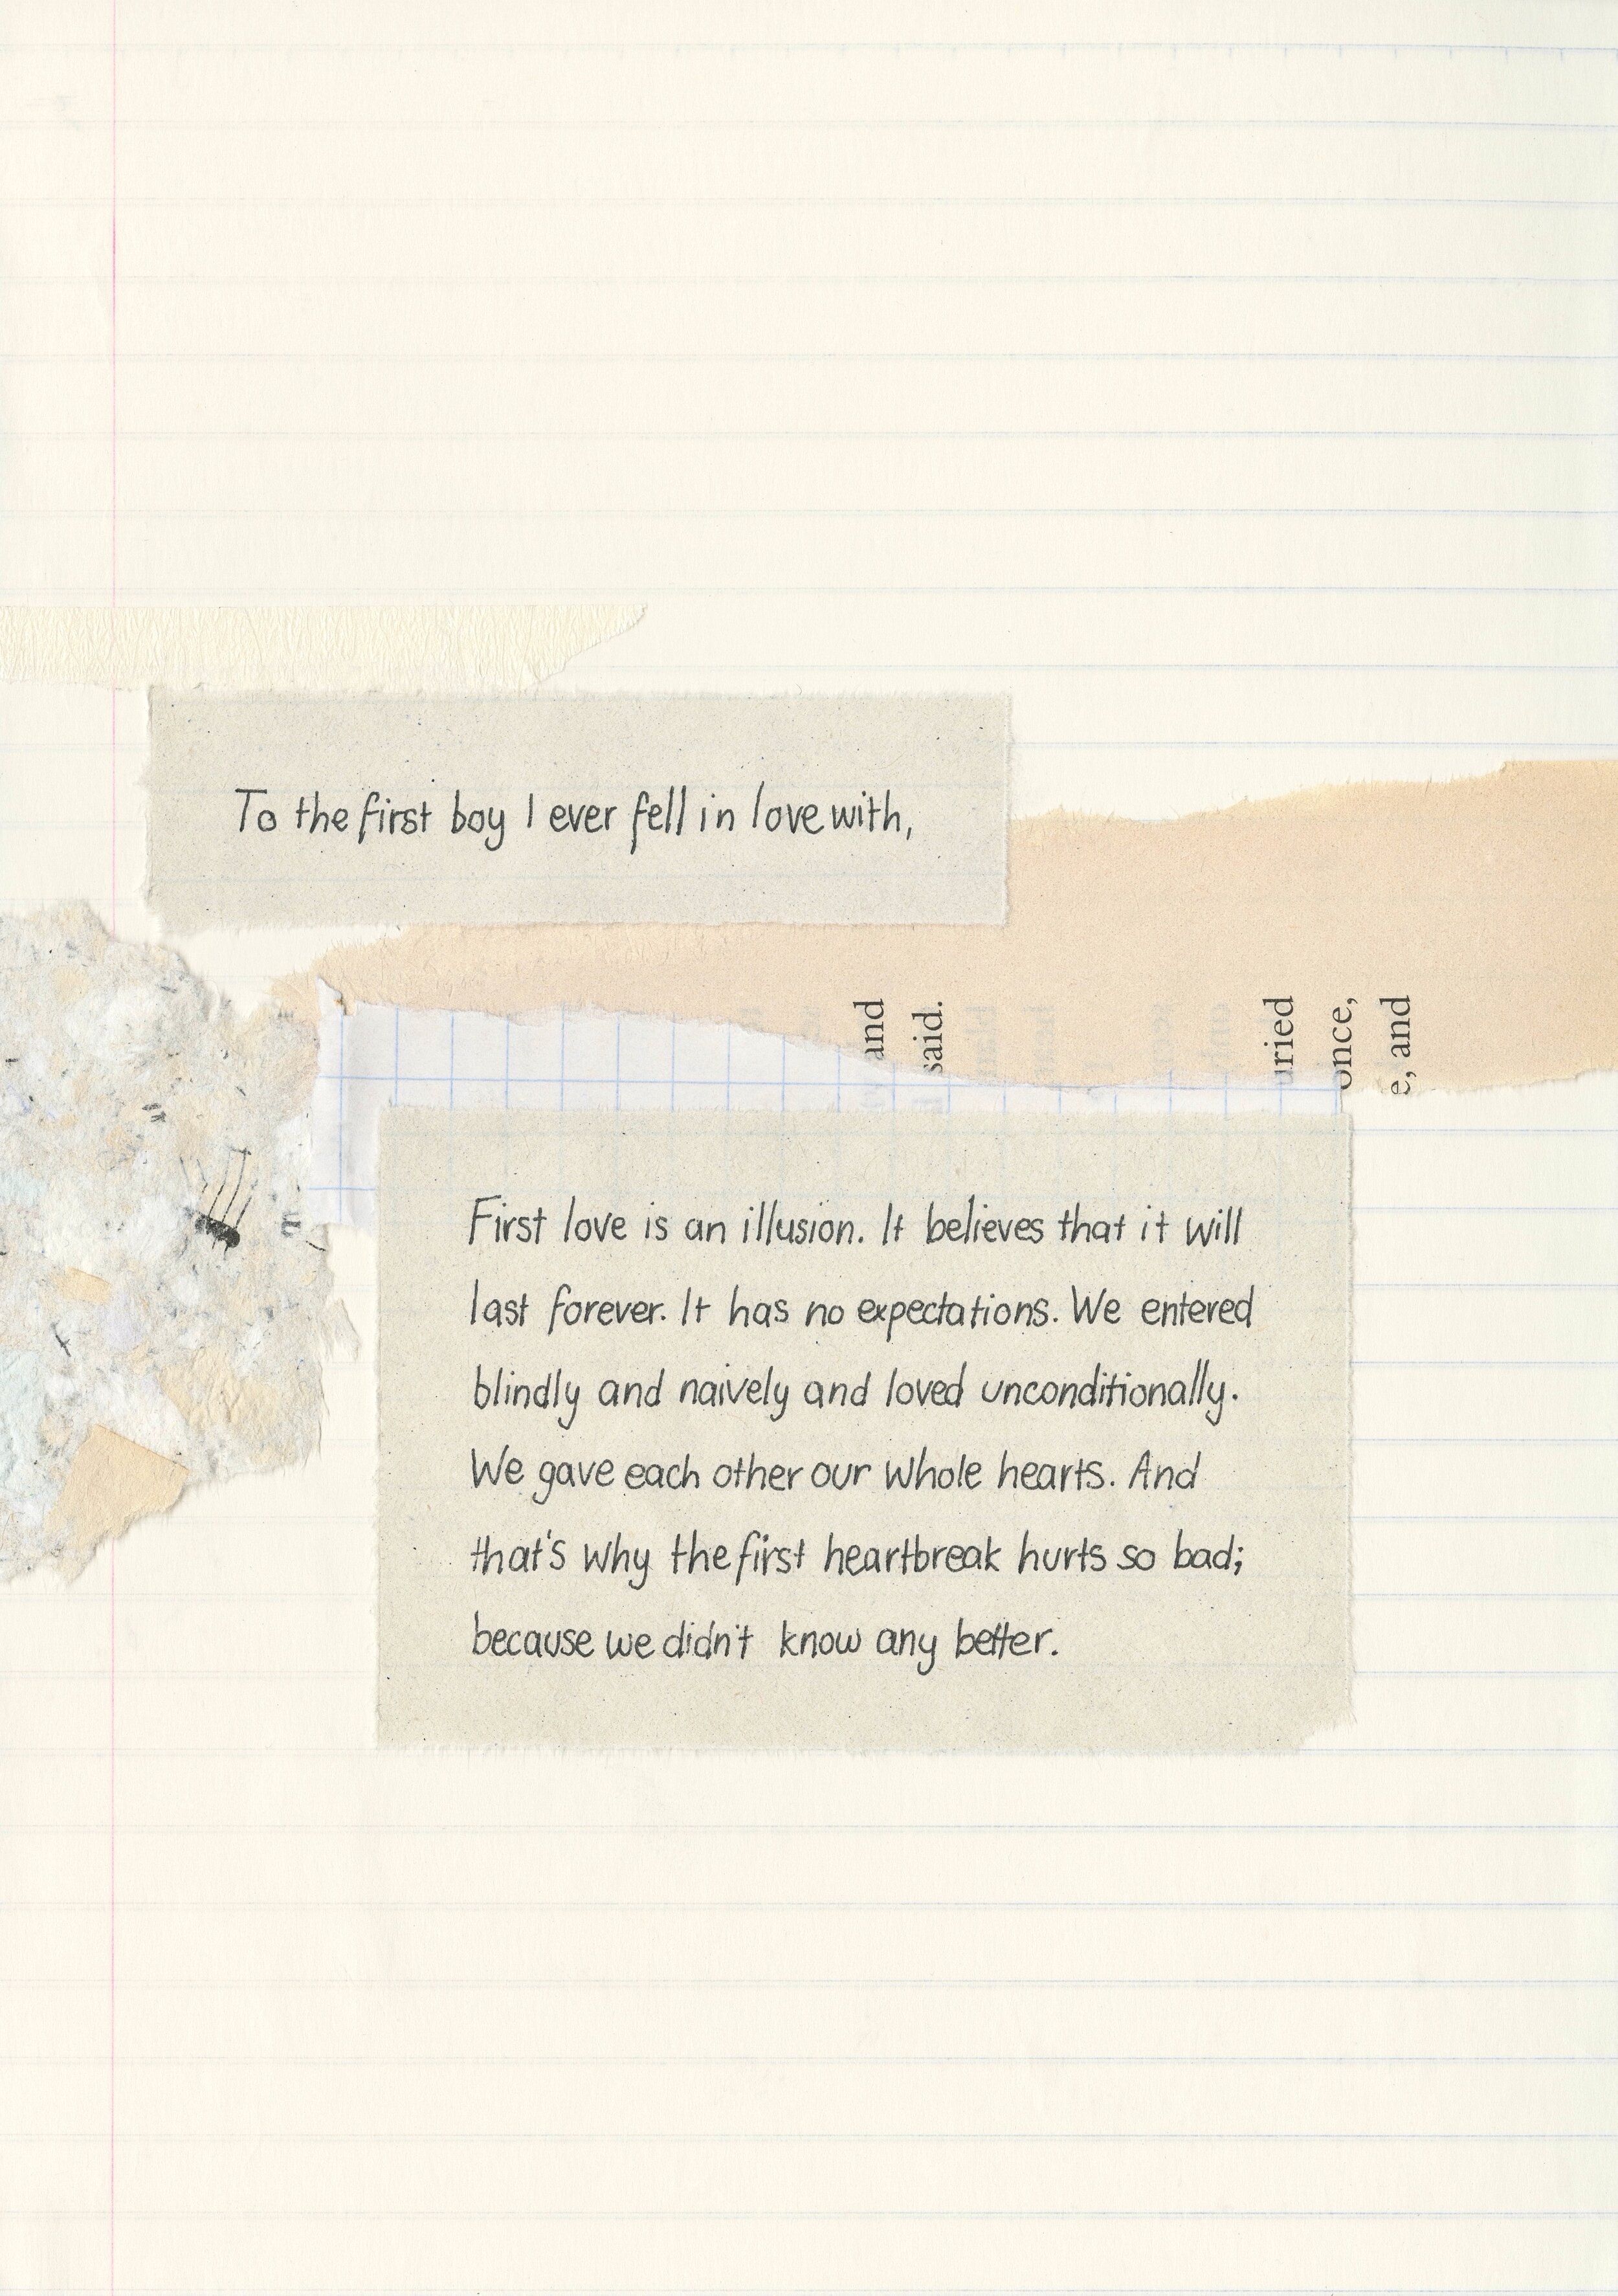 To the first boy I ever fell in love with,
and
said.
once,
e, and
First love is an illusion. It believes that it will
last forever. It has no expectations. We entered
blindly and naively and loved unconditionally.
We gave each other our whole hearts. And
that's why the first heartbreak hurts so bad;
because we didn't know any better.